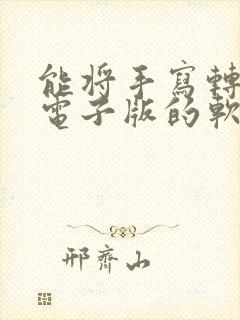 能將手寫轉
電子版的軟
邢齊山